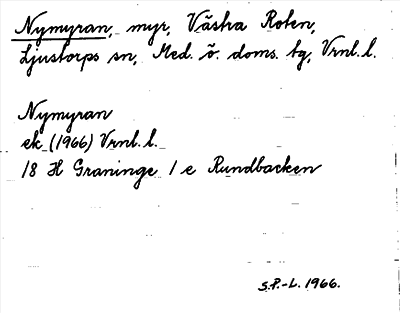 Nymyran, myr, Västra Roten,
Ljustorps sn, Med. ö. doms. tg, Vrnl. l.
Nymyran
ek (1966) Vrnl. l.
18 H Graninge 1 e Rundbacken
S.P.-L. 1966.